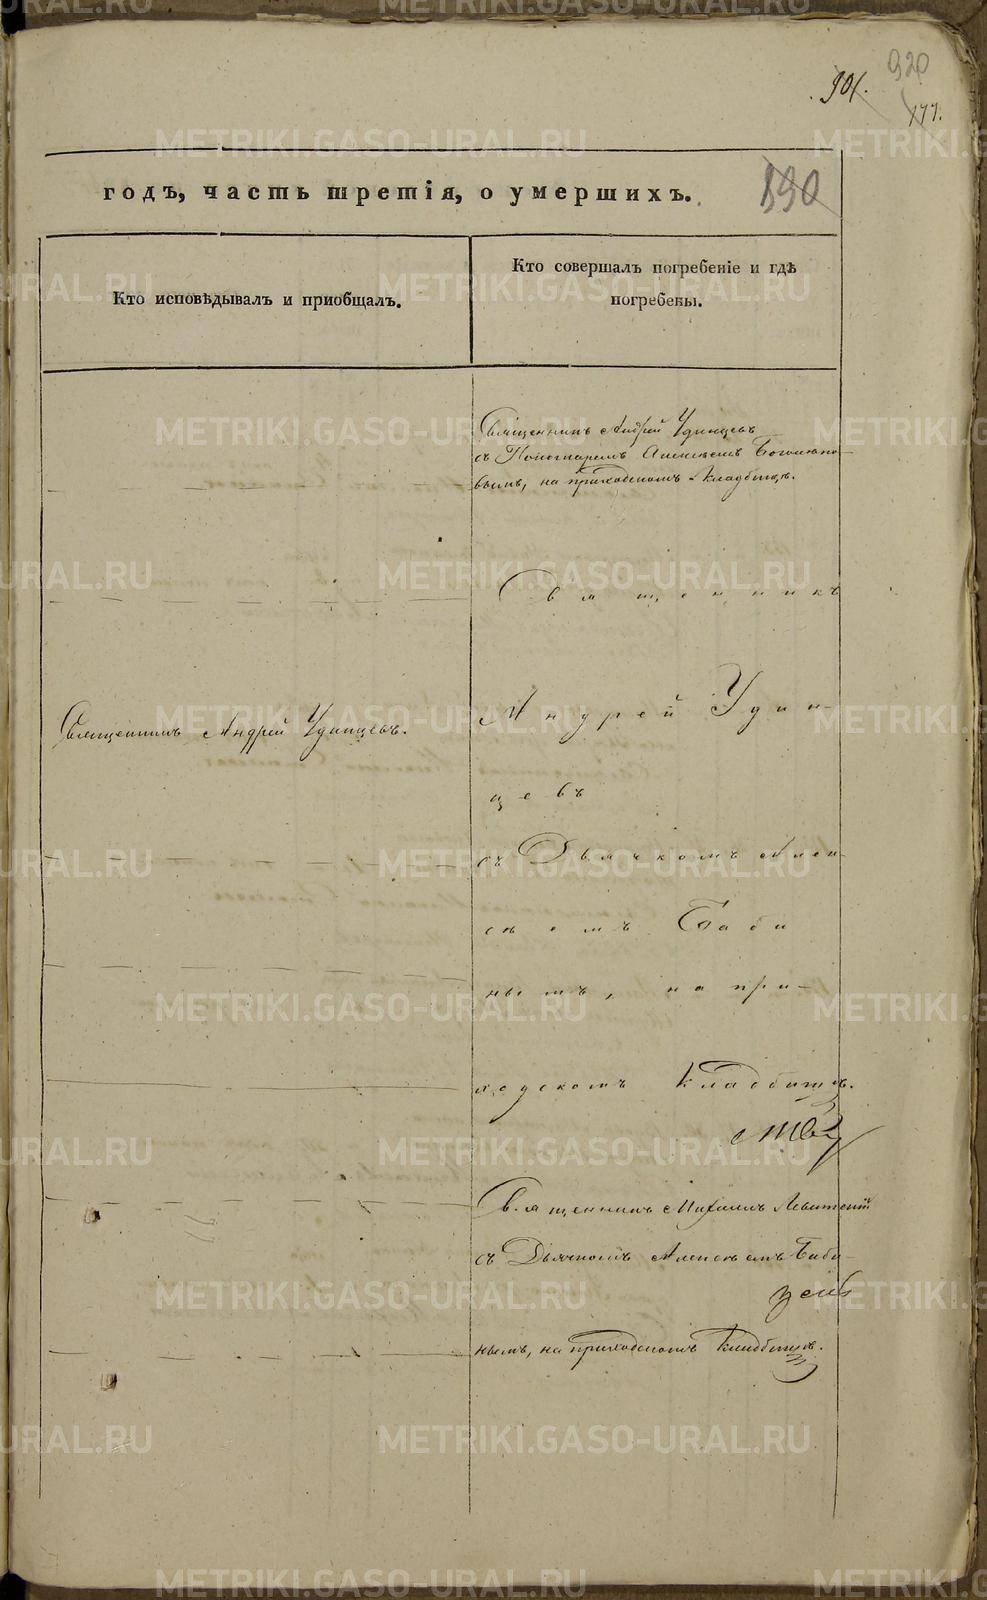 920
901.
177.
годъ, часть третія, о умершихъ.
890
Кто исповѣдывалъ и пріобщалъ.
Кто совершалъ погребеніе и гдѣ
погребены.
Священникъ Андрей Удинцевъ
съ Пономаремъ Алексѣемъ Боголюпо-
вымъ, на приходскомъ кладбищѣ.
Священникъ
Андрей Удин-
Священникъ Андрей Удинцевъ.
цевъ
съ Дьячкомъ Алек
сѣемъ Баби
нымъ, на при-
ходскомъ кладбищѣ.
Священникъ Михаилъ Левитскій
съ Дьячкомъ Алексѣемъ Баби-
нымъ, на приходскомъ кладбищѣ.
METRIKI.GASO-URAL.RU